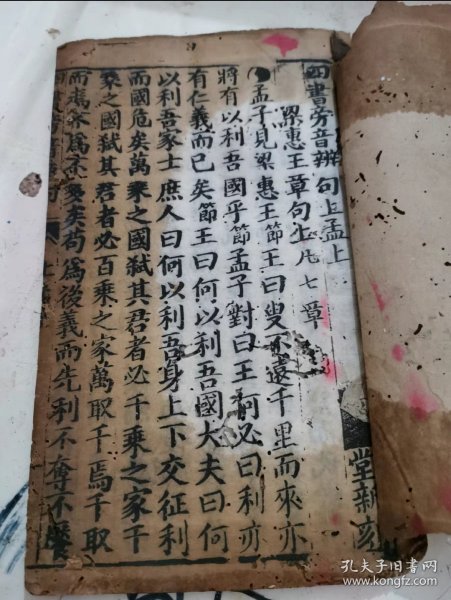 四書旁音辨句上孟上
梁惠王章句上凡七章
孟子見梁惠王節王曰叟不遠千里而來亦
將有以利吾國乎節孟子對曰王何必曰利亦
有仁義而已矣節王曰何以利吾國大夫曰何
以利吾家士庶人曰何以利吾身上下交征利
而國危矣萬乘之國弒其君者必千乘之家千
乘之國弒其君者必百乘之家萬取千焉千取
百焉不為不多矣苟為後義而先利不奪不饜
堂新刻
孔夫子旧書网
www.kongfz.com